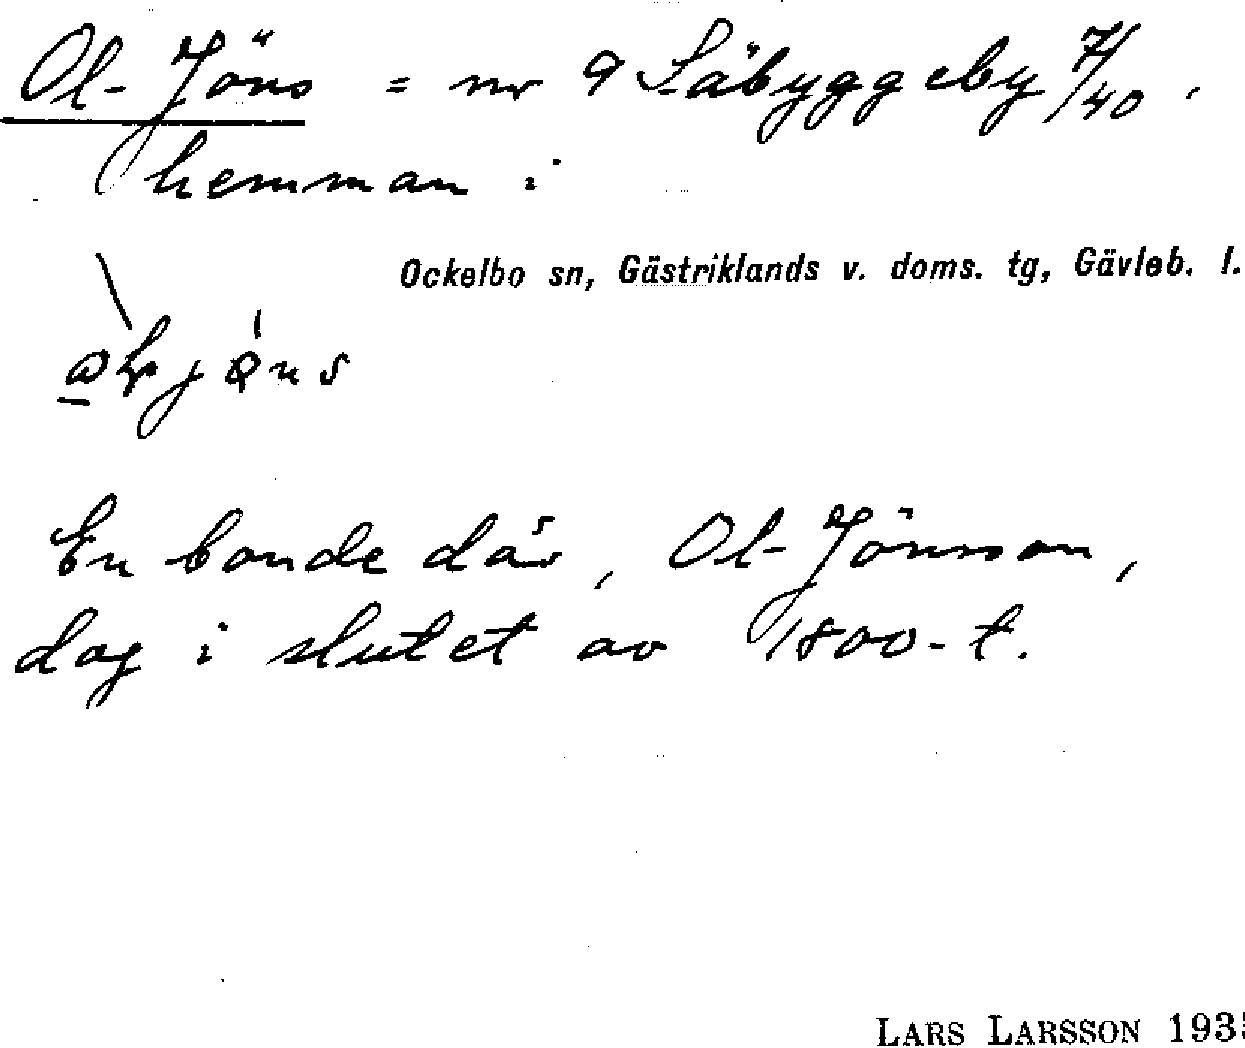 Ol-Jöns = nr 9 Säbyggeby 7/40.
hemman i
Ockelbo sn, Gästriklands v. doms. tg, Gävleb. l.
En bonde där, Ol-Jönsson,
dog i slutet av 1800-t.
LARS LARSSON 193